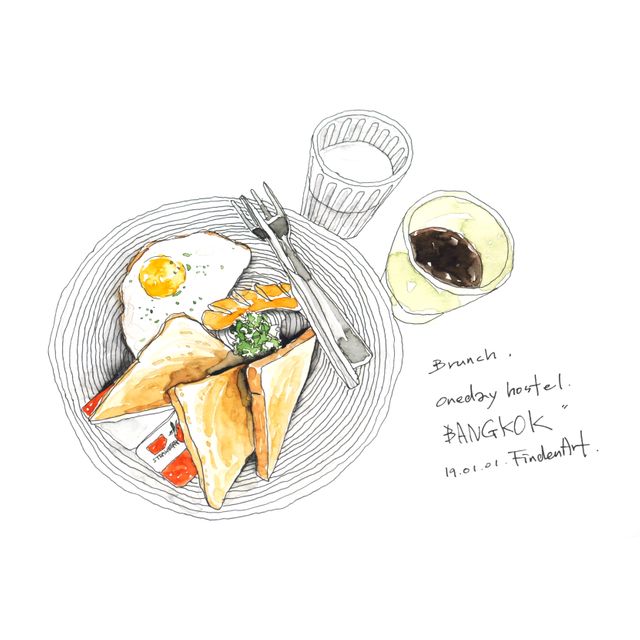 STRAWBERRY
Brunch.
oneday hostel.
BANGKOK"
19.01.01. FindenArt.